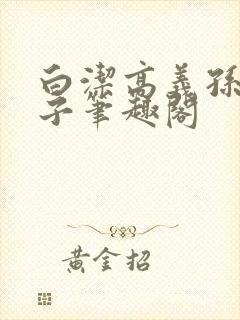 白潔高義孫
子筆趣閣
黃金招